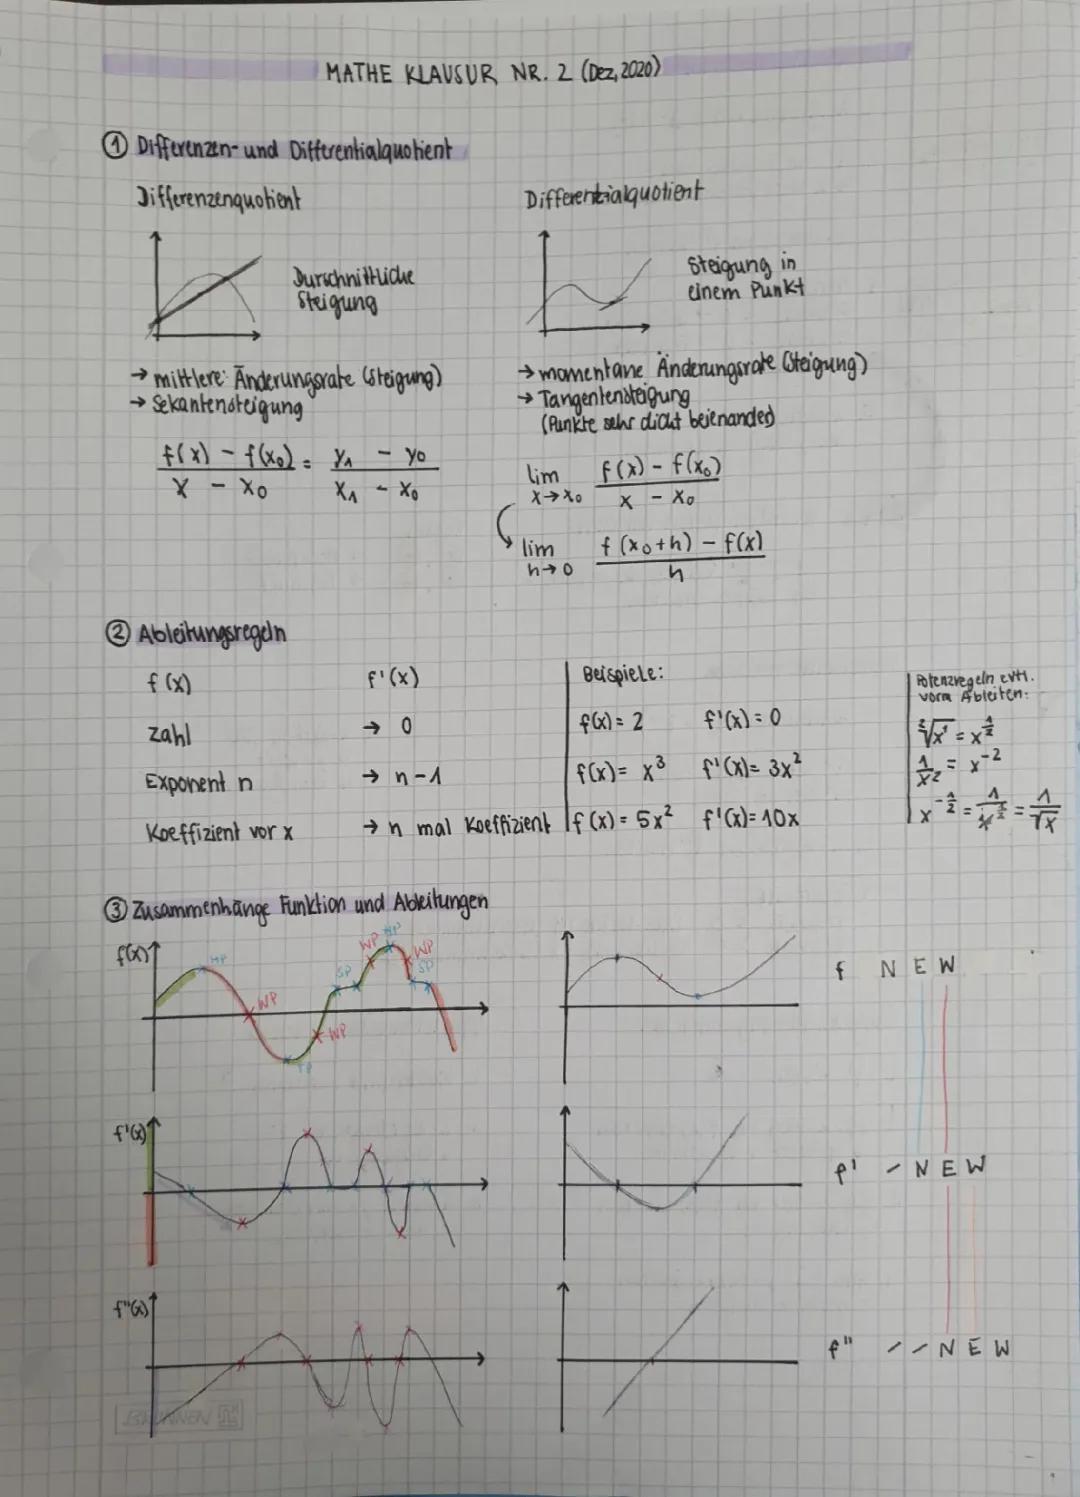 MATHE KLAUSUR NR. 2 (Dez, 2020)
① Differenzen- und Differentialquotient
Differenzenquotient
Durschnittliche
Steigung
→ mittlere: Änderungsrate (Steigung)
→ Sekantensteigung
f(x) - f(x₀) = y₁ - y₀
x - x₀ x₁ - x₀
Differentialquotient
Steigung in
einem Punkt
→ momentane Änderungsrate (Steigung)
→ Tangentensteigung
(Punkte sehr dicht beienander)
lim f(x) - f(x₀)
x→x₀ x - x₀
lim f(x₀+h) - f(x)
h→0 h
② Ableitungsregeln
f(x) f'(x)
Zahl → 0
Exponent n → n-1
Koeffizient vor x → n mal Koeffizient
Beispiele:
f(x) = 2 f'(x) = 0
f(x) = x³ f'(x) = 3x²
f(x) = 5x² f'(x) = 10x
Potenzregeln evtl.
vorm Ableiten:
²√x¹ = x^½
1/x² = x⁻²
x^-½ = 1/x^½ = 1/√x
③ Zusammenhänge Funktion und Ableitungen
f(x)
HP
WP
TP
WP
SP
WP
HP
WP
SP
f N E W
f'(x)
f' - N E W
f''(x)
f'' - - N E W
BRUNNEN